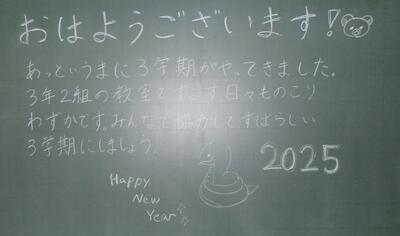 おはようございます!
あっというまに3学期がやってきました。
3年2組の教室ですごす日々ものこり
わずかです。みんなで協力して、すばらしい
3学期にしましょう。
2025
Happy
New
Year